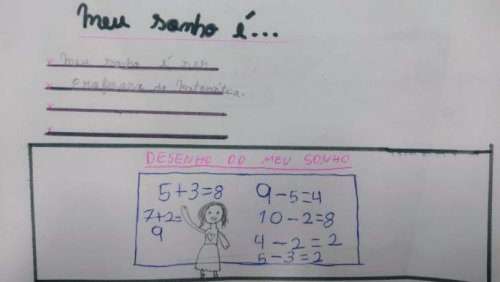 Meu sonho é...
x Meu sonho é ser
x Professora de Matemática.
x
x
DESENHO DO MEU SONHO
5+3=8
7+2=
9
9-5=4
10-2=8
4-2=2
5-3=2